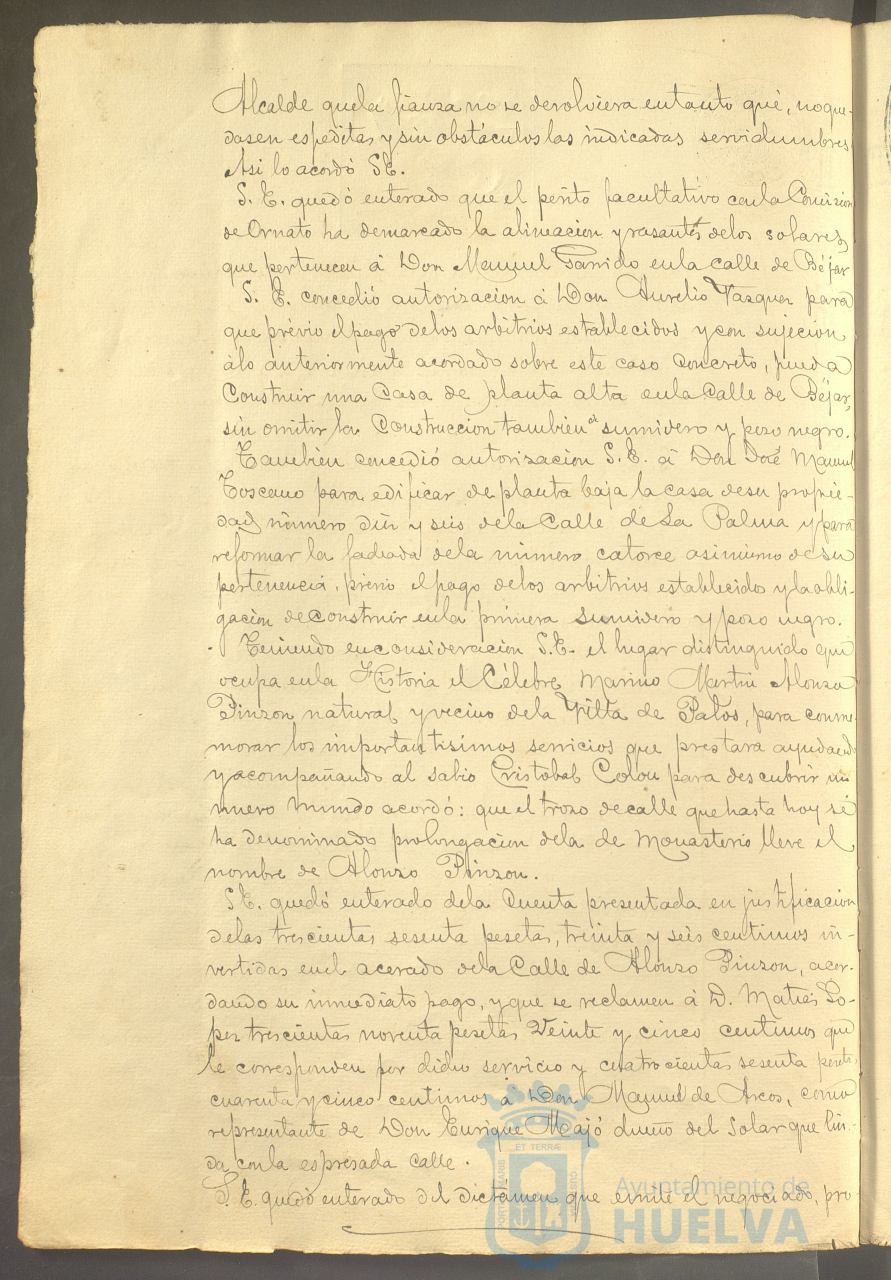 Alcalde quela fianza no se devolviera entanto qué, noque-
dasen espeditas y sin obstáculos las indicadas servidumbres
Asi lo acordó S.E.
S. E. quedó enterado que el perito facultativo conla Comision
de Ornato ha demarcado la alineacion y rasantes delos solares,
que pertenecen á Don Manuel Garrido enla calle de Béjar
S. E. concedió autorizacion á Don Aurelio Vazquez para
que prévio elpago delos arbitrios establecidos y con sujecion
álo anteriormente acordado sobre este caso concreto, pueda
Construir una Casa de planta alta enla Calle de Béjar,
sin omitir la Construccion tambien el sumidero y pozo negro.
Tambien concedió autorizacion S.E. á Don José Manuel
Toscano para edificar de planta baja la casa desu propie-
dad número diez y seis dela Calle de La Palma y para
reformar la fachada dela número catorce asimismo de su
pertenencia, prévio elpago delos arbitrios establecidos y la obli-
gacion deconstruir enla primera sumidero y pozo negro.
Teniendo enconsideracion S.E. el lugar distinguido que
ocupa enla Historia el Célebre Marino Martin Alonso
Pinzon natural y vecino dela Villa de Palos, para conme
morar los importantisimos servicios que prestara ayudando
y acompañando al sabio Cristobal Colon para descubrir un
nuevo mundo acordó: que el trozo decalle que hasta hoy se
ha denominado prolongacion dela de Monasterio lleve el
nombre de Alonzo Pinzon.
S.E. quedó enterado dela Cuenta presentada en justificacion
delas trescientas sesenta pesetas, treinta y seis centimos in-
vertidas enel acerado dela Calle de Alonzo Pinzon, acor-
dando su inmediato pago, y que se reclamen á D. Matias Lo-
pez trescientas noventa pesetas Veinte y cinco centimos que
le corresponden por dicho servicio y cuatrocientas sesenta pesetas
cuarenta y cinco centimos á Don Manuel de Arcos, como
representante de Don Enrique Majó dueño del Solar que lin-
da conla espresada calle.
S. E. quedó enterado del dictámen que emite el negociado, pro
ET TERRÆ
Ayuntamiento de
HUELVA